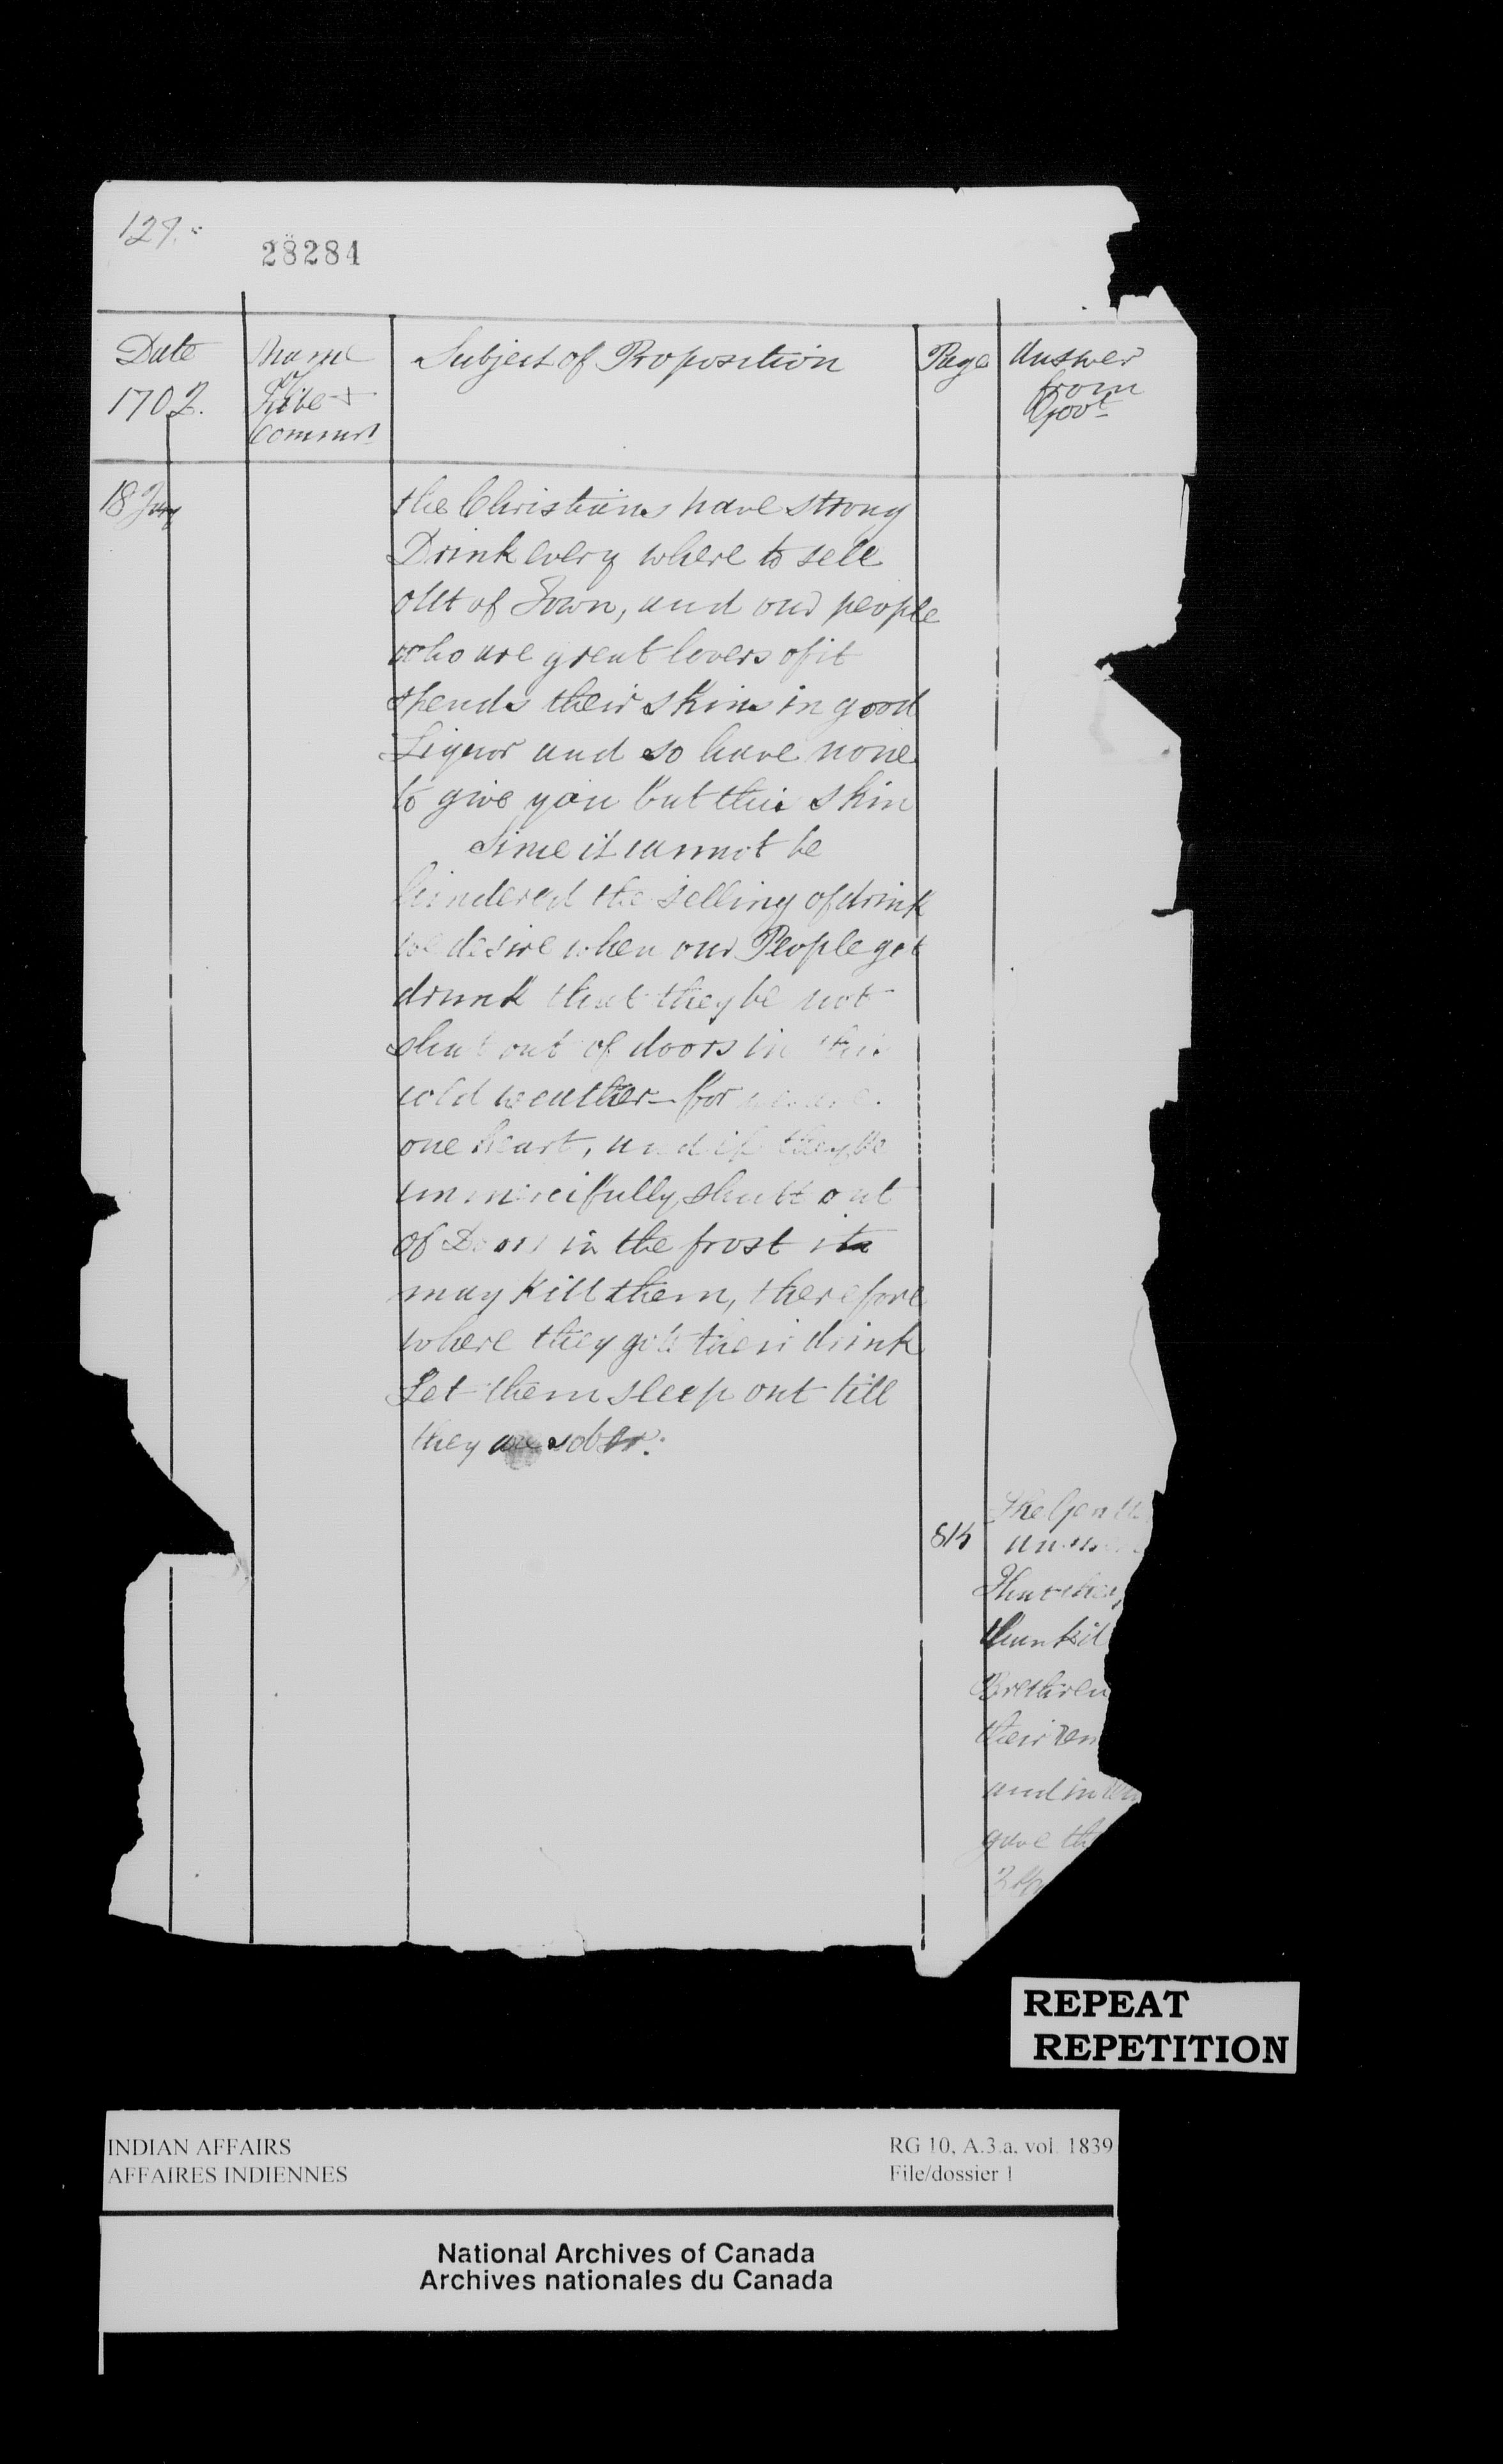 129.
28284
Date
1702.
Name
of
Tribe &
Commrs
Subject of Proposition
Page
Answer
from
Govt
18 Jany
the Christians have strong
Drink every where to sell
out of Town, and our people
who are great lovers of it
spends their skins in good
Liquor and so have none
to give you but this skin
Since it cannot be
hindered the selling of drink
we desire when our People get
drunk that they be not
shut out of doors in this
cold weather for we are
one heart, and if they be
unmercifully shutt out
of Doors in the frost it
may kill them, therefore
where they gett their drink
Let them sleep out till
they are sober.
The Gentl
815
That they
thank
Brethren
their
and in
gave th
2
REPEAT
REPETITION
INDIAN AFFAIRS
AFFAIRES INDIENNES
RG 10, A.3.a. vol. 1839
File/dossier 1
National Archives of Canada
Archives nationales du Canada